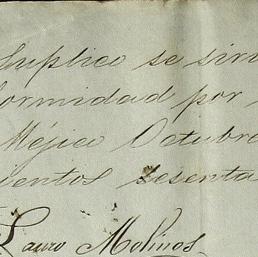 Suplico se sirv
formidad por
Méjico Octubre
cientos sesenta
Lauro Molinos